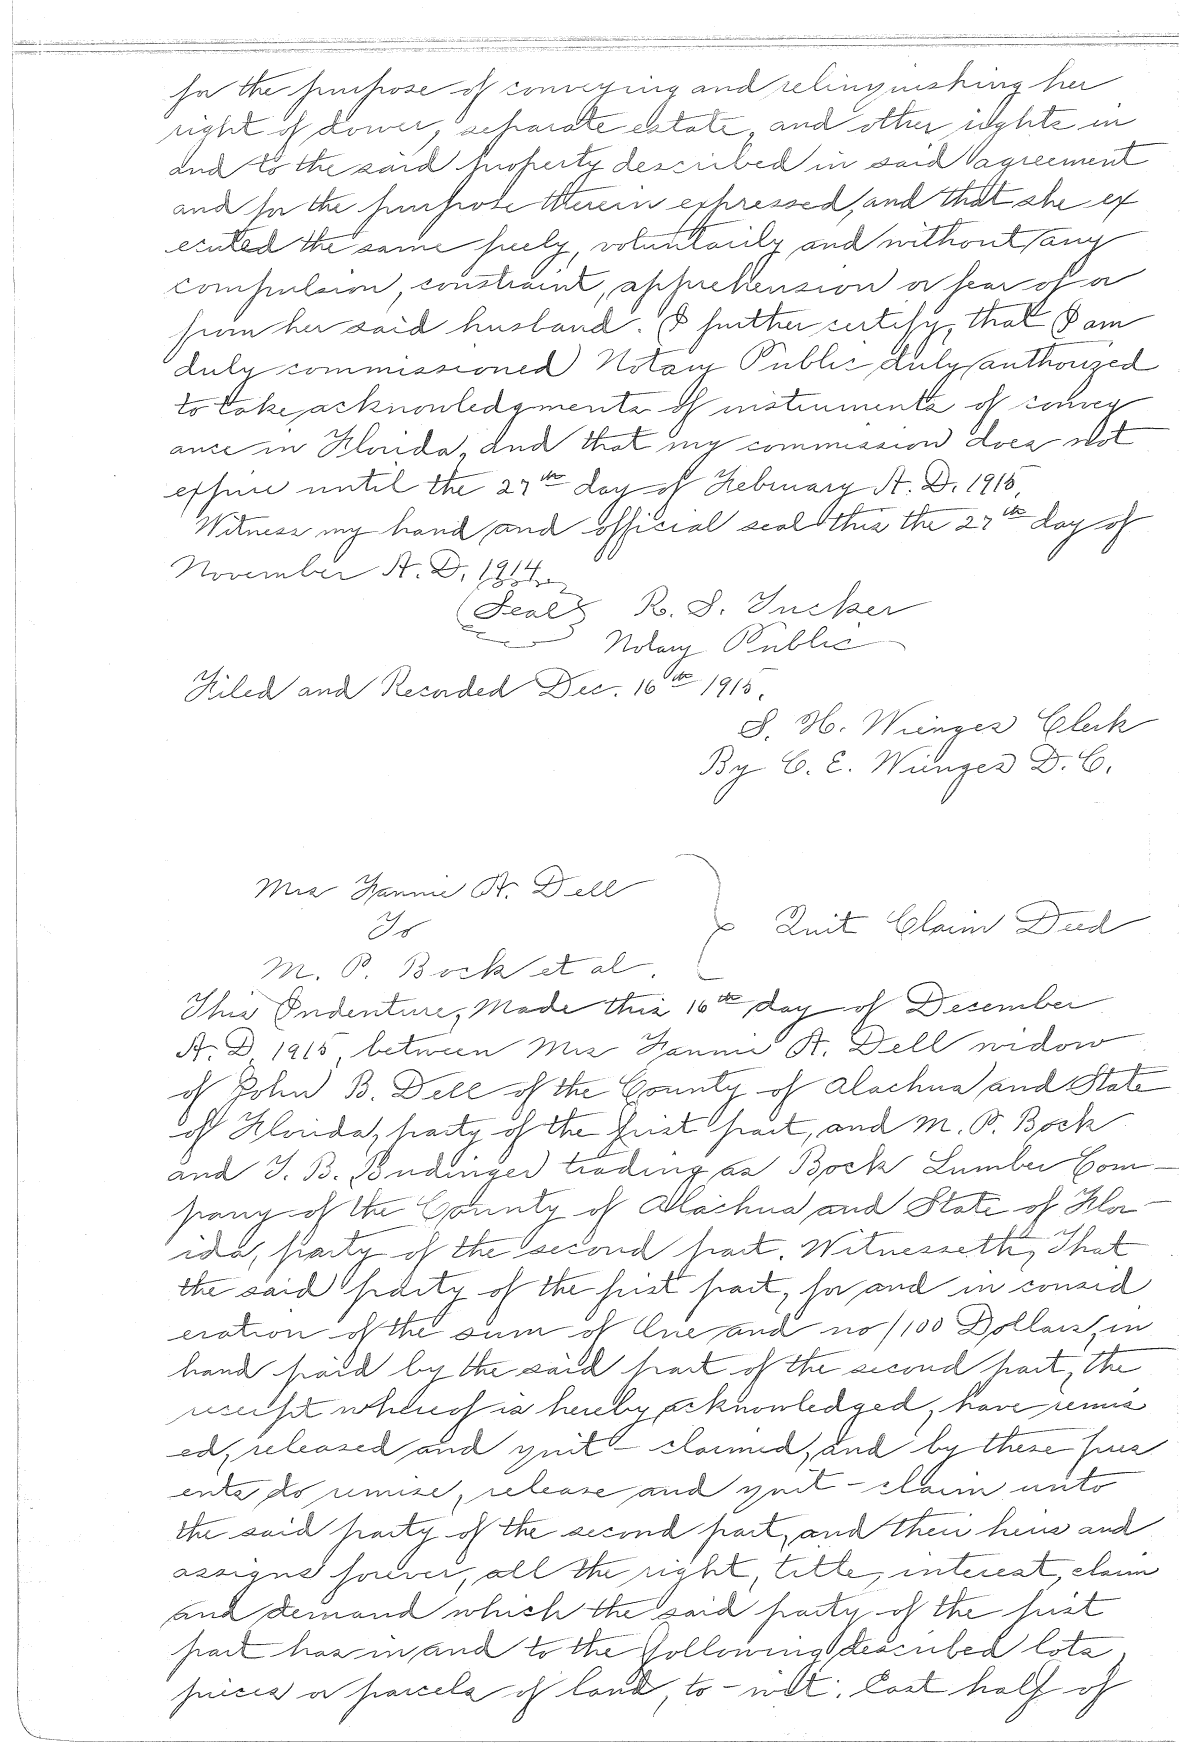 for the purpose of conveying and relinquishing her
right of dower, separate estate, and other rights in
and to the said property described in said agreement
and for the purpose therein expressed, and that she ex
ecuted the same freely, voluntarily and without any
compulsion, constraint, apprehension or fear of or
from her said husband. I further certify, that I am
duly commissioned Notary Public duly authorized
to take acknowledgments of instruments of convey
ance in Florida, and that my commission does not
expire until the 27th day of February A. D. 1915,
Witness my hand and official seal this the 27th day of
November A. D. 1914
(Seal) R. S. Tucker
Notary Public
Filed and Recorded Dec. 16th 1915.
S. H. Wienges Clerk
By C. E. Wienges D. C.
Mrs Fannie A. Dell
To
Quit Claim Deed
M. P. Bock et al.
This Indenture, Made this 16th day of December
A. D. 1915, between Mrs Fannie A. Dell widow
of John B. Dell of the County of Alachua and State
of Florida, party of the first part, and M. P. Bock
and T. B. Budinger trading as Bock Lumber Com-
pany of the County of Alachua and State of Flor-
ida, party of the second part. Witnesseth, That
the said party of the first part, for and in consid
eration of the sum of One and no/100 Dollars, in
hand paid by the said part of the second part, the
receipt whereof is hereby acknowledged, have remis
ed, released and quit-claimed, and by these pres
ents do remise, release and quit-claim unto
the said party of the second part, and their heirs and
assigns forever, all the right, title, interest, claim
and demand which the said party of the first
part has in and to the following described lots,
pieces or parcels of land, to-wit: East half of